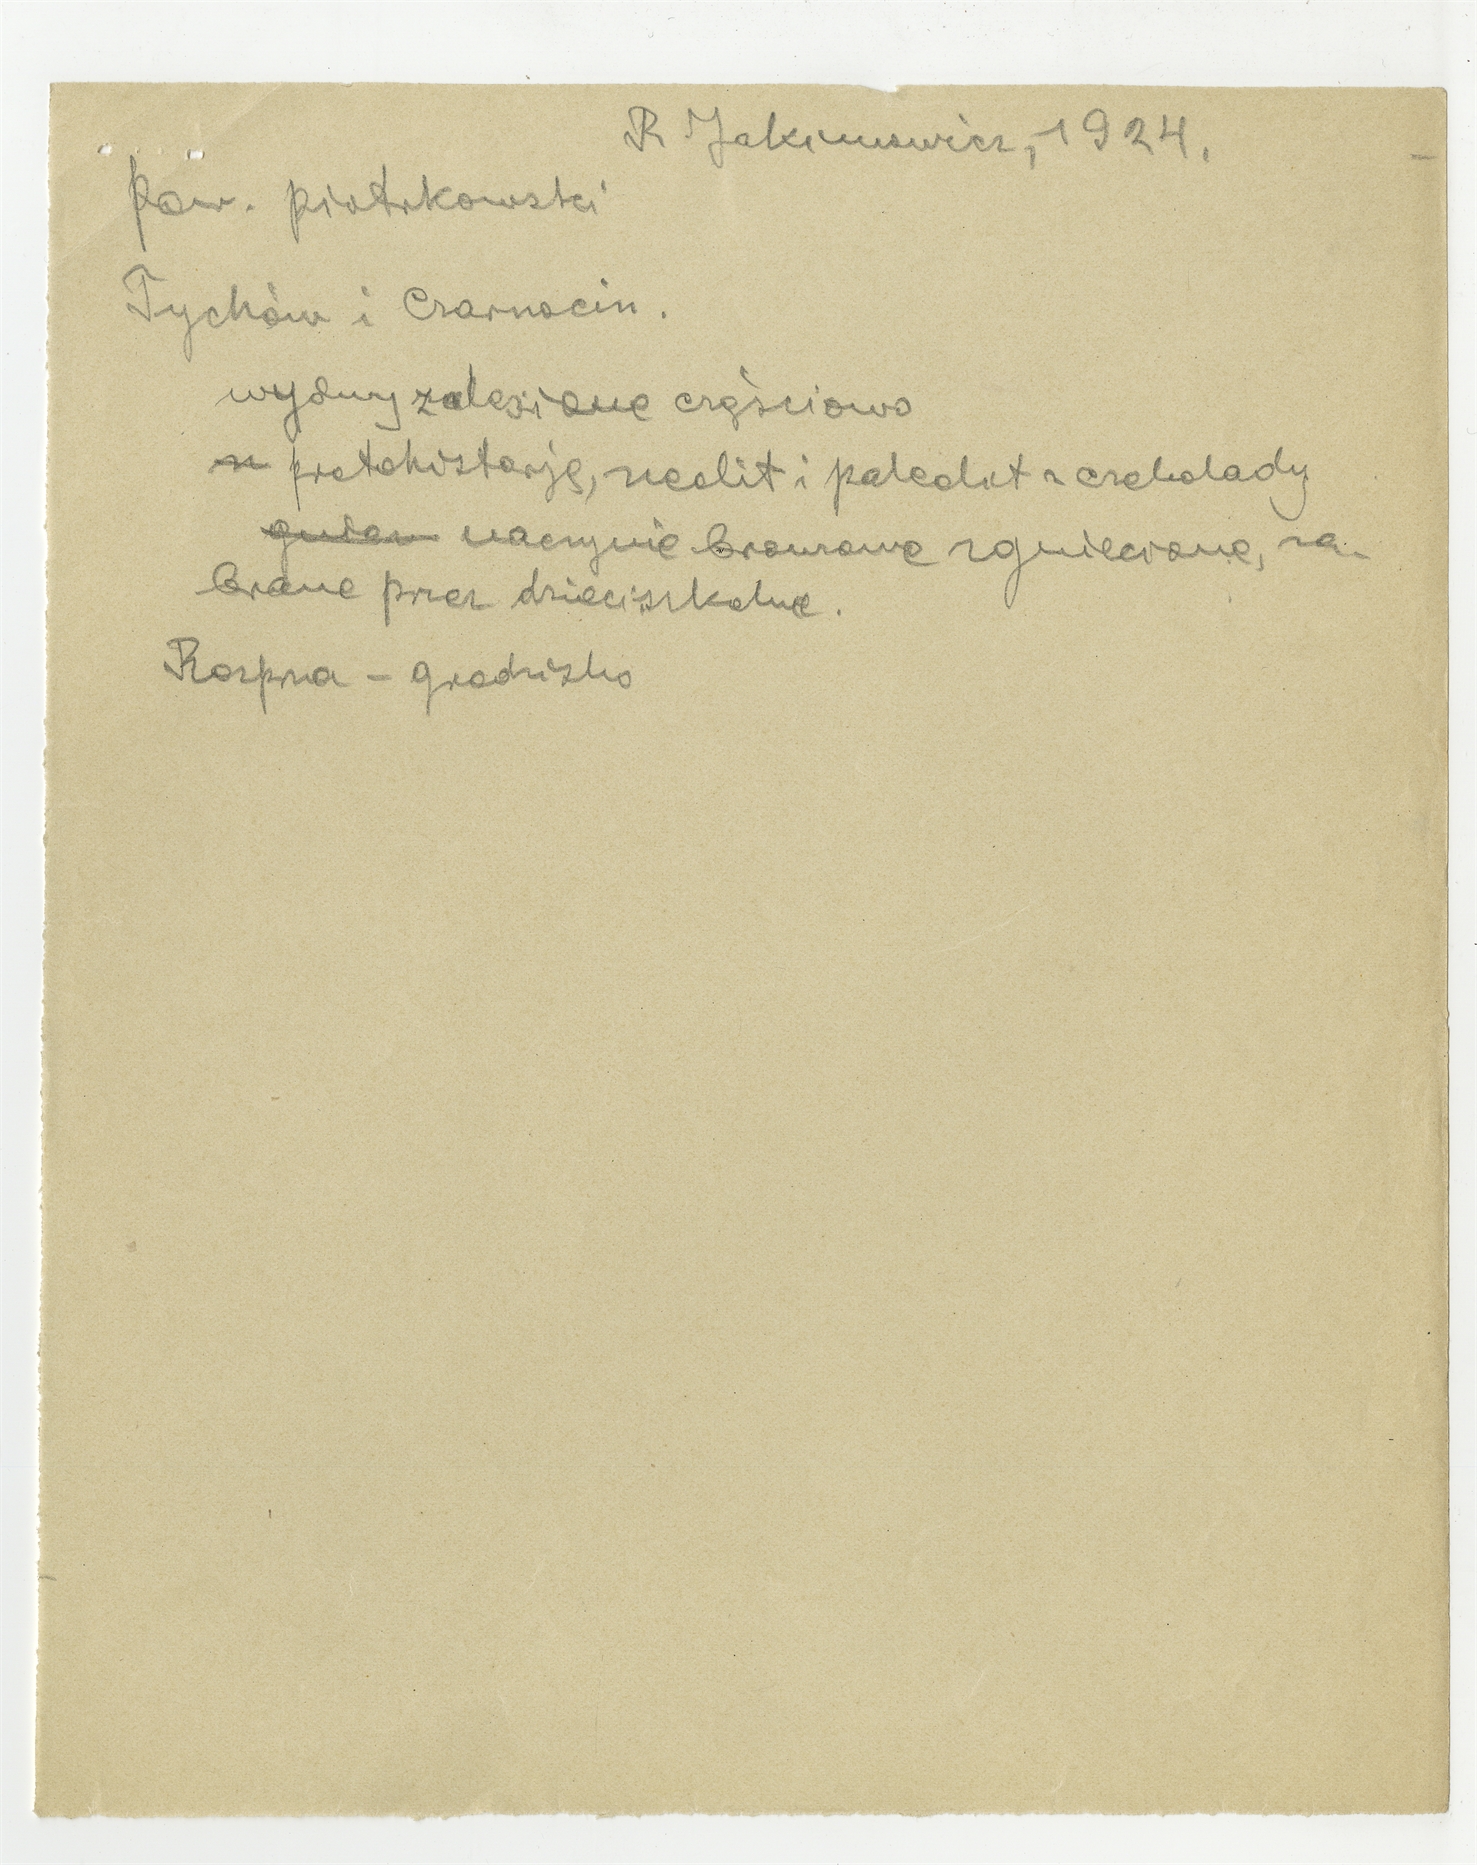 R Jakimowicz, 1924.
Pow. piotrkowski
Tychów i Czarnocin.
wydmy zalesione częściowo
protohistorję, neolit i paleolit z czekolady
naczynie bronzowe zgniecione, za-
brane przez dzieci szkolne.
Rozprza - grodzisko